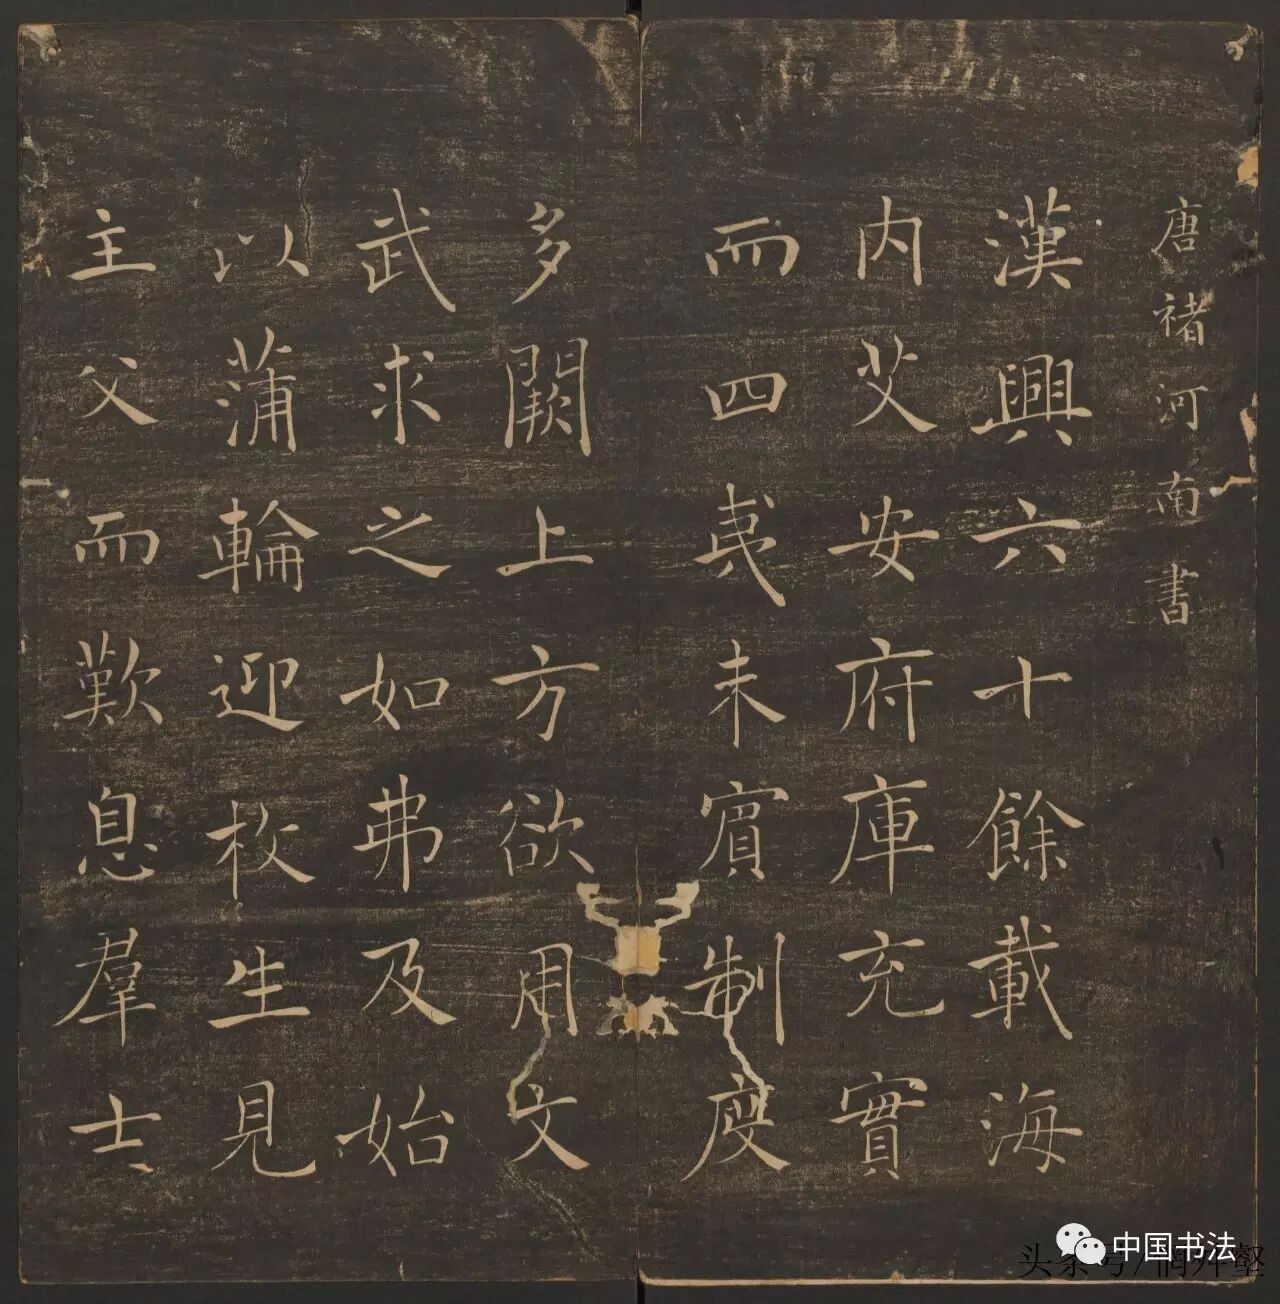 唐褚河南書
漢興六十餘載海
内艾安府庫充實
而四夷未賓制度
多闕上方欲用文
武求之如弗及始
以蒲輪迎枚生見
主父而歎息羣士
中国书法
头条号/